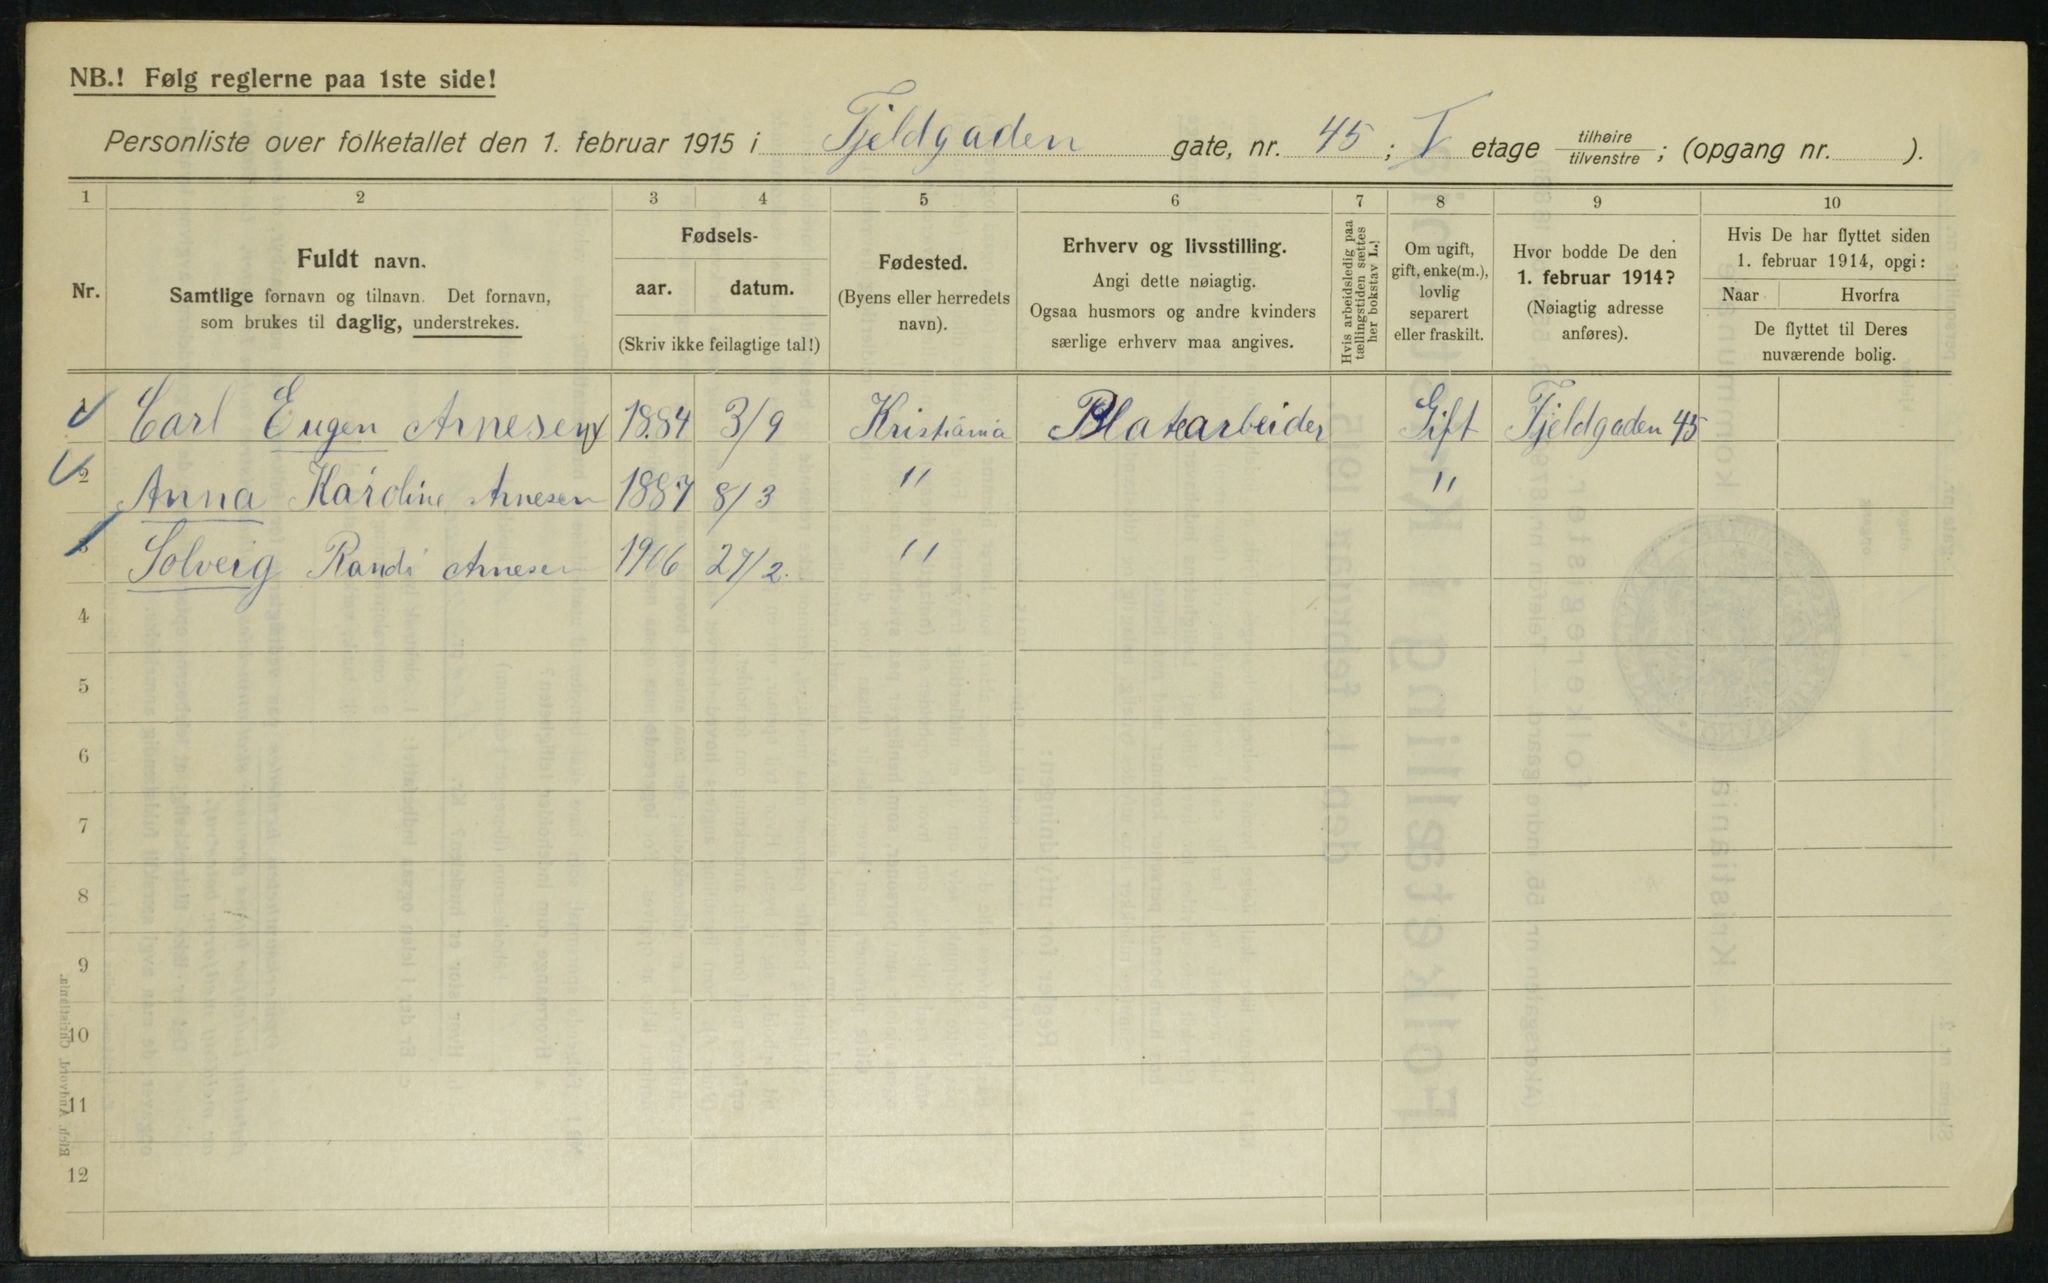 NB.! Følg reglerne paa 1ste side!
Personliste over folketallet den 1. februar 1915 i Fjeldgaden gate, nr. 45; I etage tilhøire/tilvenstre; (opgang nr. ).
1 2 3 4 5 6 7 8 9 10
Nr.
Fuldt navn.
Samtlige fornavn og tilnavn. Det fornavn,
som brukes til daglig, understrekes.
Fødsels-
aar. datum.
(Skriv ikke feilagtige tal!)
Fødested.
(Byens eller herredets
navn).
Erhverv og livsstilling.
Angi dette nøiagtig.
Ogsaa husmors og andre kvinders
særlige erhverv maa angives.
Hvis arbeidsledig paa
tællingstiden sættes
her bokstav L.!
Om ugift,
gift, enke(m.),
lovlig
separert
eller fraskilt.
Hvor bodde De den
1. februar 1914?
(Nøiagtig adresse
anføres).
Hvis De har flyttet siden
1. februar 1914, opgi:
Naar Hvorfra
De flyttet til Deres
nuværende bolig.
1 Carl Eugen Arnesen 1884 3/9 Kristiania Platearbeider Gift Fjeldgaden 45
2 Anna Karoline Arnesen 1887 8/3 " "
3 Solveig Randi Arnesen 1906 27/2. "
4
5
6
7
8
9
10
11
12
Rich. Andvord, Christiania.